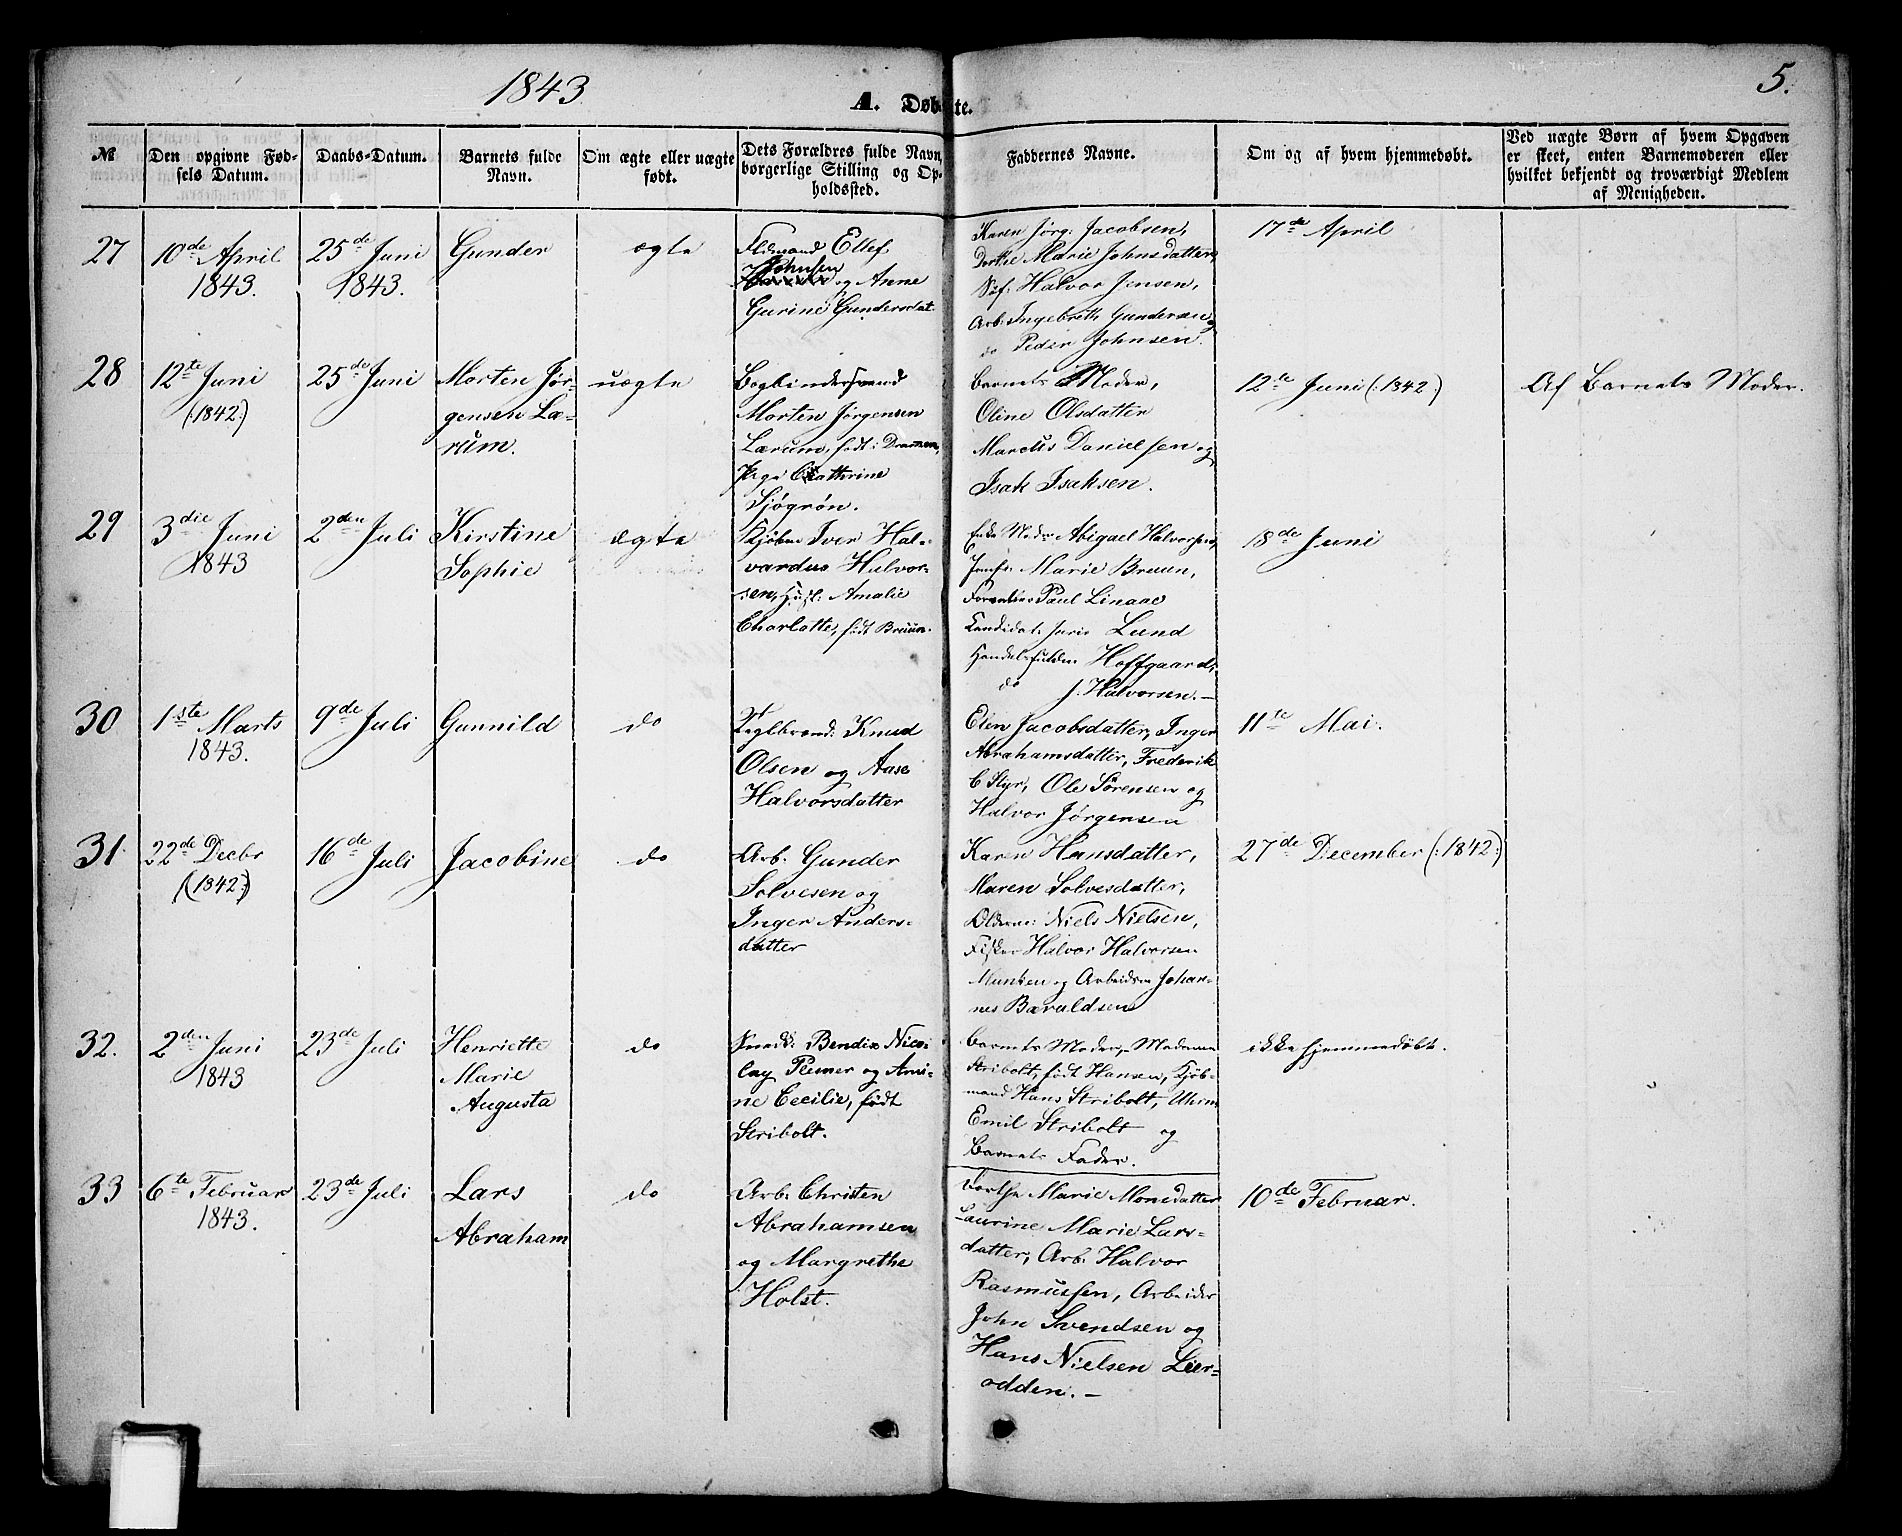 1843
A. Døbte.
5.
№
Den opgivne Fød-
sels Datum.
Daabs-Datum.
Barnets fulde
Navn.
Om ægte eller uægte
født.
Dets Forældres fulde Navn,
borgerlige Stilling og Op-
holdssted.
Faddernes Navne.
Om og af hvem hjemmedøbt.
Ved uægte Børn af hvem Opgaven
er skeet, enten Barnemoderen eller
hvilket bekjendt og troværdigt Medlem
af Menigheden.
27
10de April
1843.
25de Juni
1843.
Gunder
ægte
Ellef
Johnsen
og Anne
Gurine Gundersdat.
Karen Jørg: Jacobsen,
Dorthe Marie Johnsdatter,
Søf: Halvor Jensen,
Arb: Ingebreth Gundersen og
do Peder Johnsen.
17de April
28
12te Juni
(:1842:)
25de Juni
Morten Jør-
gensen Læ-
rum.
uægte
Bogbindersvend
Morten Jørgensen
Lærum, født: Drammen,
Pige Cathrine
Sjøgrøn.
Barnets Moder,
Oline Olsdatter
Marcus Danielsen og
Isak Isaksen.
12te Juni (:1842:)
Af Barnets Moder.
29
3die Juni
1843
2den Juli
Kirstine
Sophie
ægte
Kjøbm Iver Hal-
vardus Halvor-
sen, Hust: Amalie
Charlotte, født Bruun.
Enke Mad: Abigael Halvorsen,
Jomfr: Marie Bruun,
Paul Linaae
Kandidat: Juris Lund
Hoffgaard,
do J. Halvorsen.-
18de Juni
30
1ste Marts
1843.
9de Juli
Gunnild
do
Teglbrænd: Knud
Olsen og Aase
Halvorsdatter
Elen Jacobsdatter, Inger
Abrahamsdatter, Frederik
C Styr, Ole Sørensen og
Halvor Jørgensen
11te Mai.
31
22de Decbr
(:1842:)
16de Juli
Jacobine
do
Arb: Gunder
Solvesen og
Inger Anders-
datter
Karen Hansdatter,
Maren Solvesdatter,
Olderm: Niels Nielsen,
Fisker Halvor Halvorsen
Munken og Arbeider Johan-
nes Baraldsen
27de December (:1842:)
32.
2den Juni
1843
23de Juli
Henriette
Marie
Augusta
do
Snedk: Bendix Nico-
lay Plemer og Ami-
ne Cecilie, født
Stribolt.
Barnets Moder, Madame
Stribolt, født Hansen, Kjøb-
mand Hans Stribolt, Uhrm
Emil Stribolt og
Barnets Fader.
ikke hjemmedøbt.
33
6te Februar
1843.
23de Juli
Lars
Abraham
do
Arb: Christen
Abrahamsen
og Margrethe
Holst.
Dorthe Marie Monsdatter
Laurine Marie Lars-
datter, Arb: Halvor
Rasmussen, Arbeider
John Svendsen og
Hans Nielsen Lier-
odden.-
10de Februar.